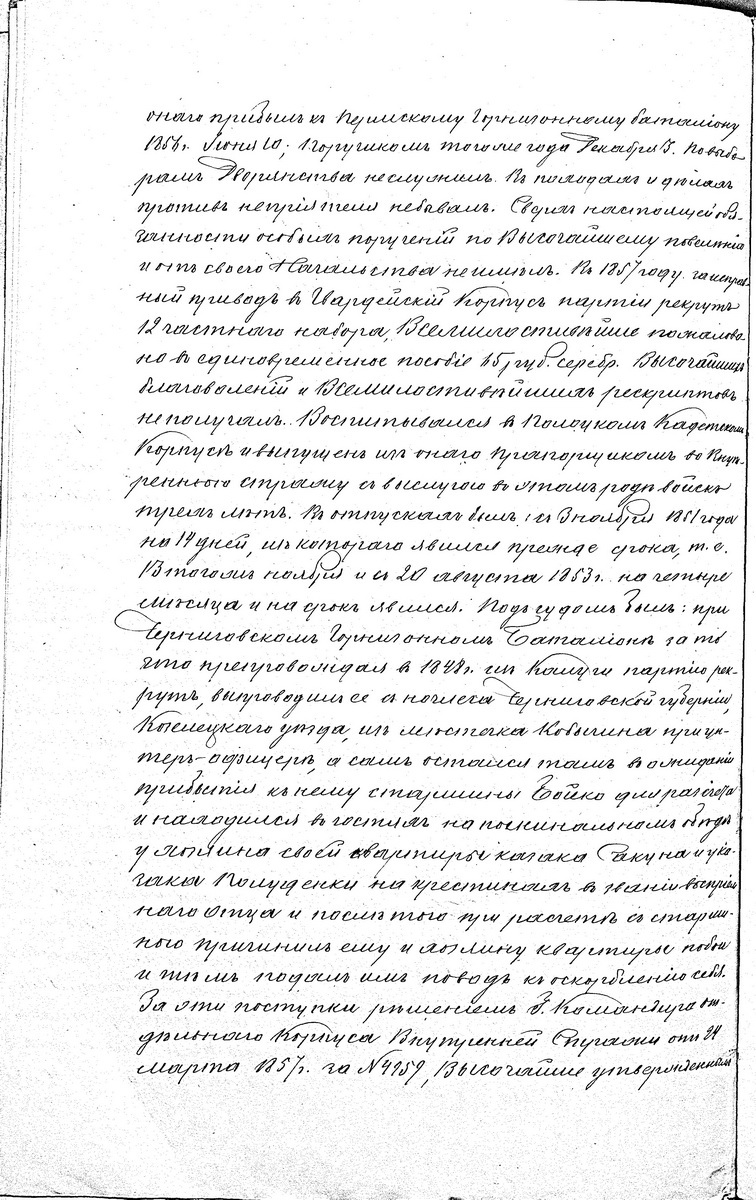 онаго прибылъ къ Пермскому Гарнизонному баталіону
185 г. Іюня 10; Поручикомъ того же года Декабря 3. По выбо-
рамъ Дворянства не служилъ. Въ походахъ и дѣлахъ
противъ непріятеля не бывалъ. Сверхъ настоящей обя-
занности особыхъ порученій по Высочайшему повелѣнію
и отъ своего Начальства не имѣлъ. Въ 1857 году за исправ-
ный приводъ въ Гвардейскій Корпусъ партіи рекрутъ
12 частнаго набора, Всемилостивѣйше пожалова-
но въ единовременное пособіе руб. серебр. Высочайшихъ
благоволеній и Всемилостивѣйшихъ рескриптовъ
не получалъ. Воспитывался въ Полоцкомъ Кадетскомъ
Корпусѣ и выпущенъ изъ онаго прапорщикомъ во Внут-
реннюю стражу съ выслугою въ этомъ родѣ войскъ
трехъ лѣтъ. Въ отпускахъ былъ: съ 3 ноября 1851 года
на 14 дней, изъ котораго явился прежде срока, т. е.
13 того мъ ноября и съ 20 августа 1853 г. на четыре
мѣсяца и на срокъ явился. Подъ судомъ былъ: при
Черниговскомъ Гарнизонномъ Баталіонѣ за то
что препровождая въ 1848 г. изъ Калуги партію рек-
рутъ, выпроводилъ ее съ ночлега Черниговской губерніи,
Козелецкаго уѣзда, изъ мѣстечка Кобыжча при ун-
теръ-офицерѣ, а самъ остался тамъ въ ожиданіи
прибытія къ нему старшины Бойко для разсчета
и находился въ гостяхъ на поминальномъ обѣдѣ
у хозяина своей квартиры казака Ракуна и у ка-
зака Полуденки на крестинахъ въ званіи воспріем-
наго отца и послѣ того при расчетѣ съ старши-
ною причинилъ ему и хозяину квартиры побои
и тѣмъ подалъ имъ поводъ къ оскорбленію себя.
За эти поступки рѣшеніемъ Г. Командира от-
дѣльнаго Корпуса Внутренней Стражи отъ 24
марта 1857 г. за N 4959, Высочайше утвержденнымъ